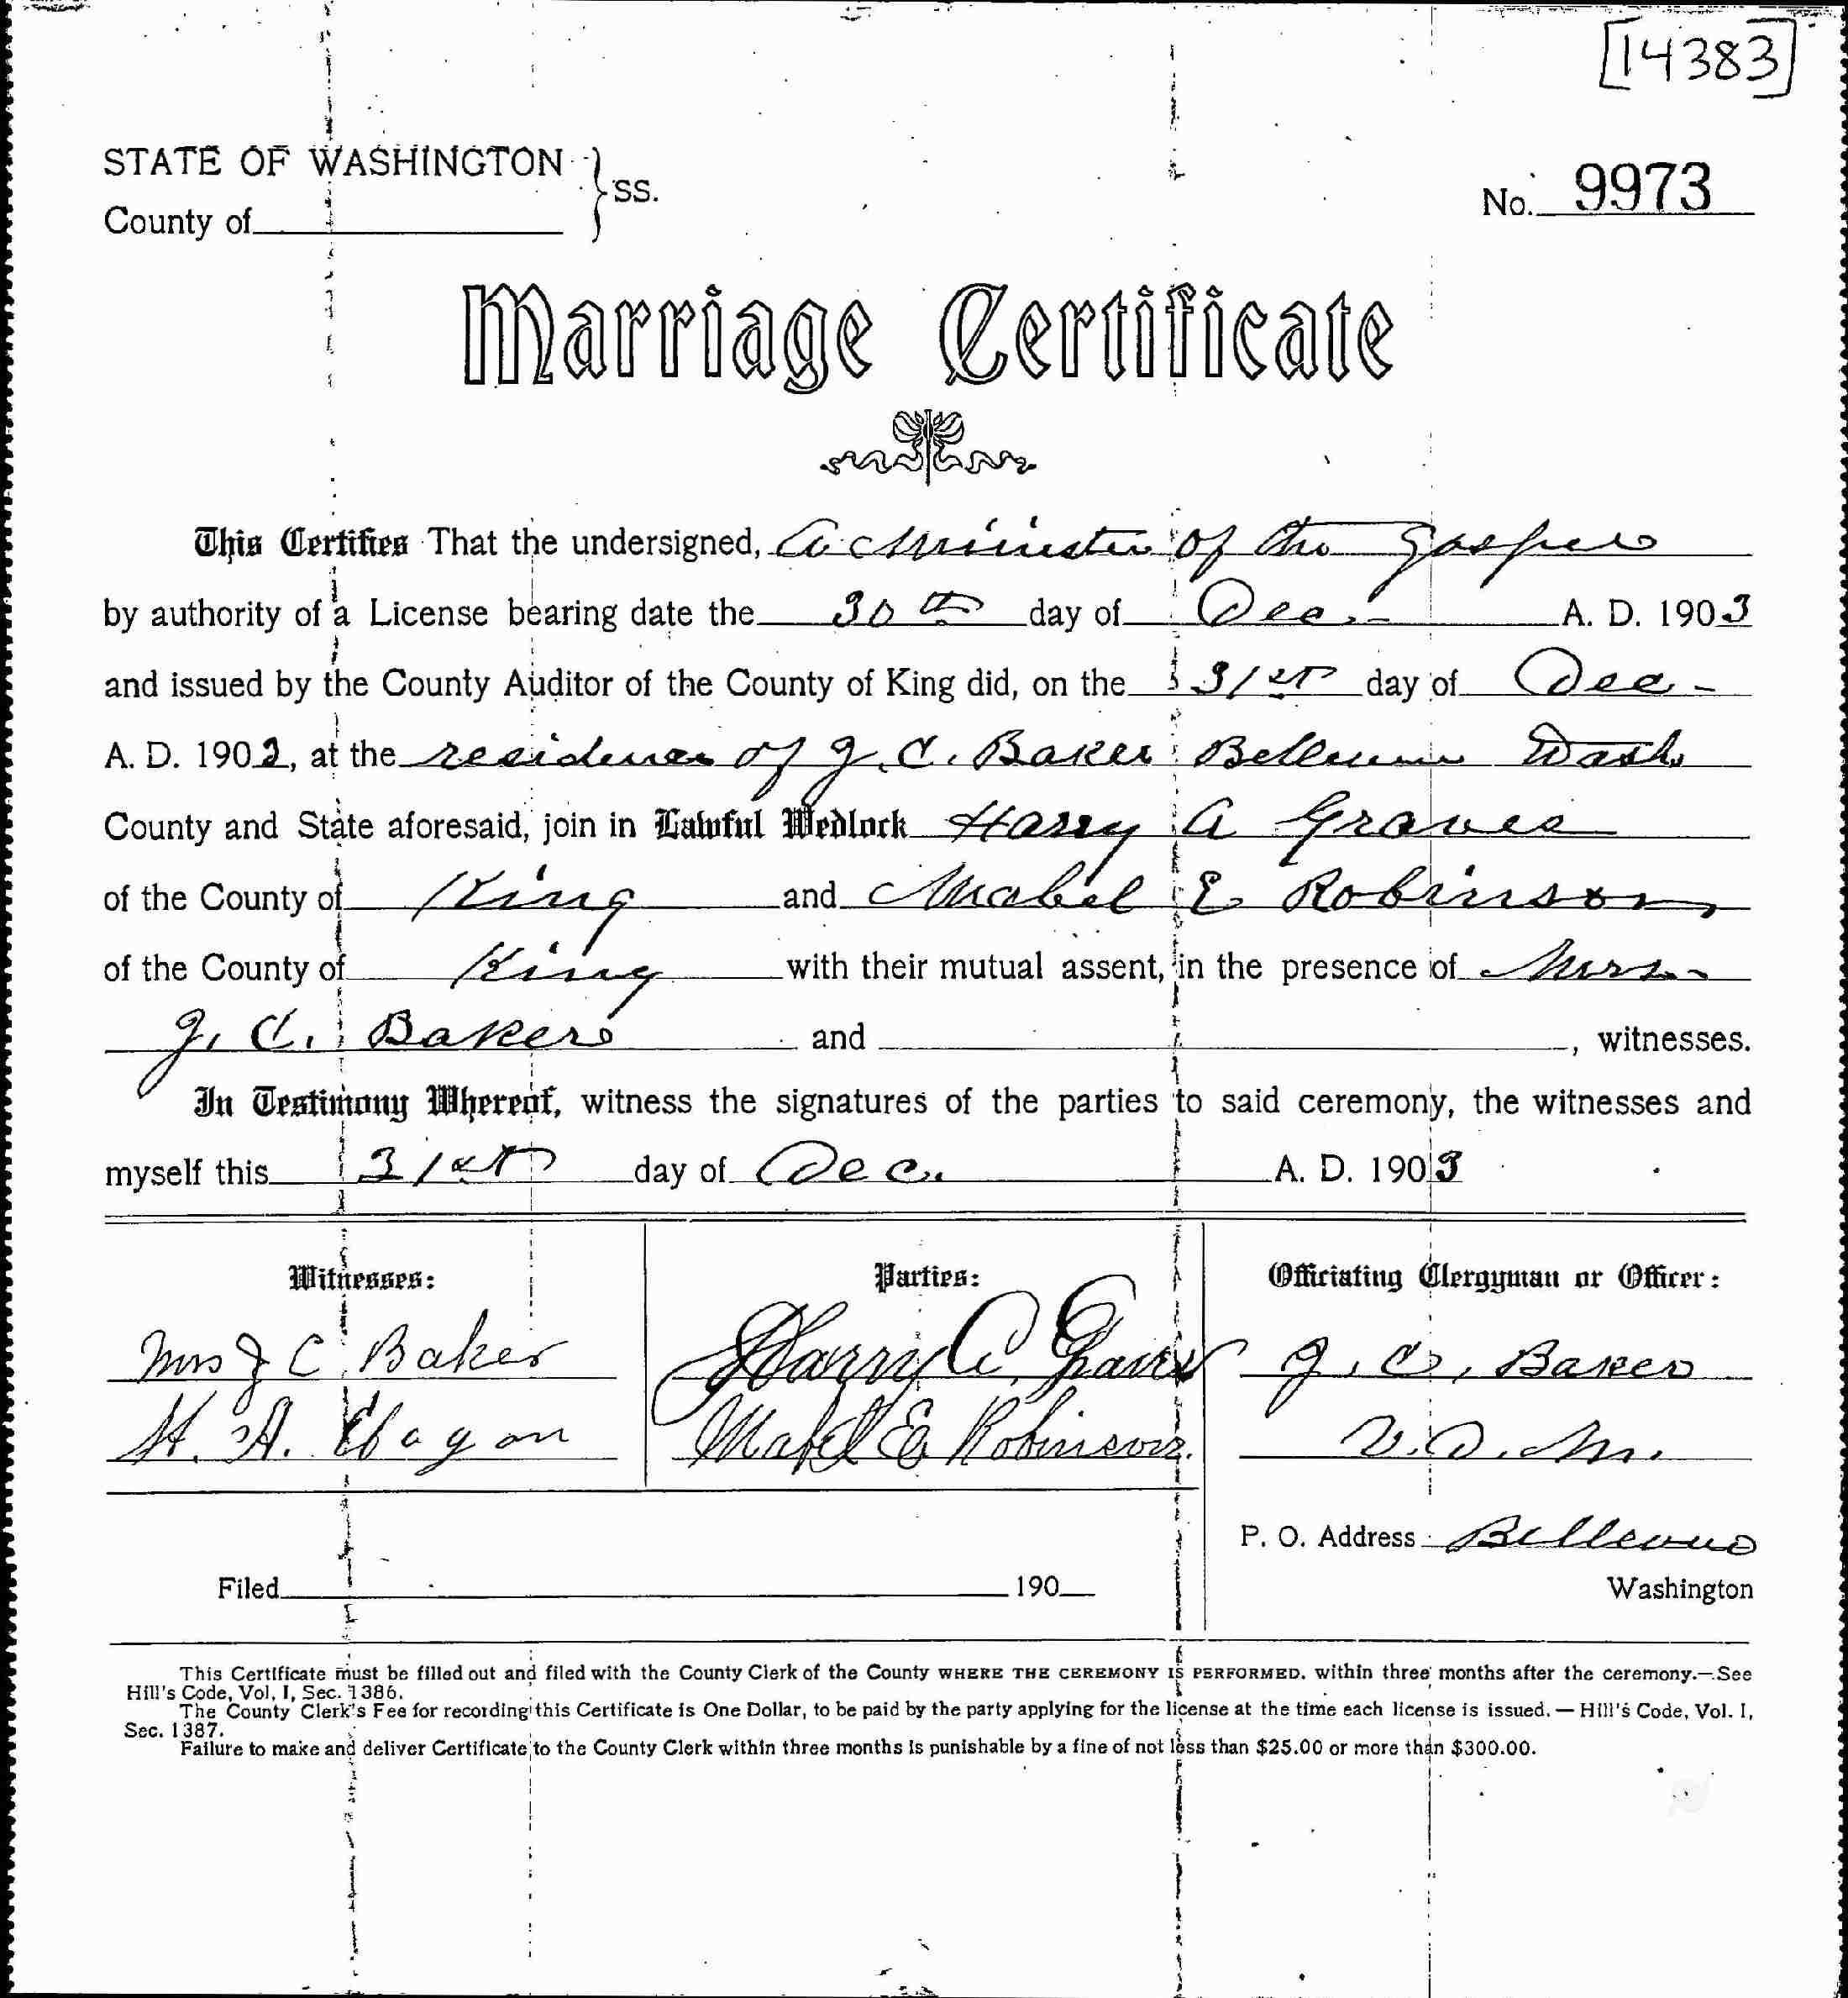 [14383]
STATE OF WASHINGTON } SS.
County of
No. 9973
Marriage Certificate
This Certifies That the undersigned, A Minister of the Gospel
by authority of a License bearing date the 30th day of Dec. A. D. 1903
and issued by the County Auditor of the County of King did, on the 31st day of Dec
A. D. 1903, at the residence of J. C. Baker Bellevue Wash
County and State aforesaid, join in Lawful Wedlock Harry A Graves
of the County of King and Mabel E Robinson
of the County of King with their mutual assent, in the presence of Mrs
J. C. Baker and , witnesses.
In Testimony Whereof, witness the signatures of the parties to said ceremony, the witnesses and
myself this 31st day of Dec. A. D. 1903
Witnesses:
Mrs J C Baker
H. A.
Parties:
Harry A. Graves
Mabel E Robinson.
Officiating Clergyman or Officer:
J. C. Baker
V. D. M.
P. O. Address Bellevue
Washington
Filed 190
This Certificate must be filled out and filed with the County Clerk of the County WHERE THE CEREMONY IS PERFORMED, within three months after the ceremony.—See
Hill's Code, Vol. I, Sec. 1386.
The County Clerk's Fee for recording this Certificate is One Dollar, to be paid by the party applying for the license at the time each license is issued. — Hill's Code, Vol. I,
Sec. 1387.
Failure to make and deliver Certificate to the County Clerk within three months is punishable by a fine of not less than $25.00 or more than $300.00.